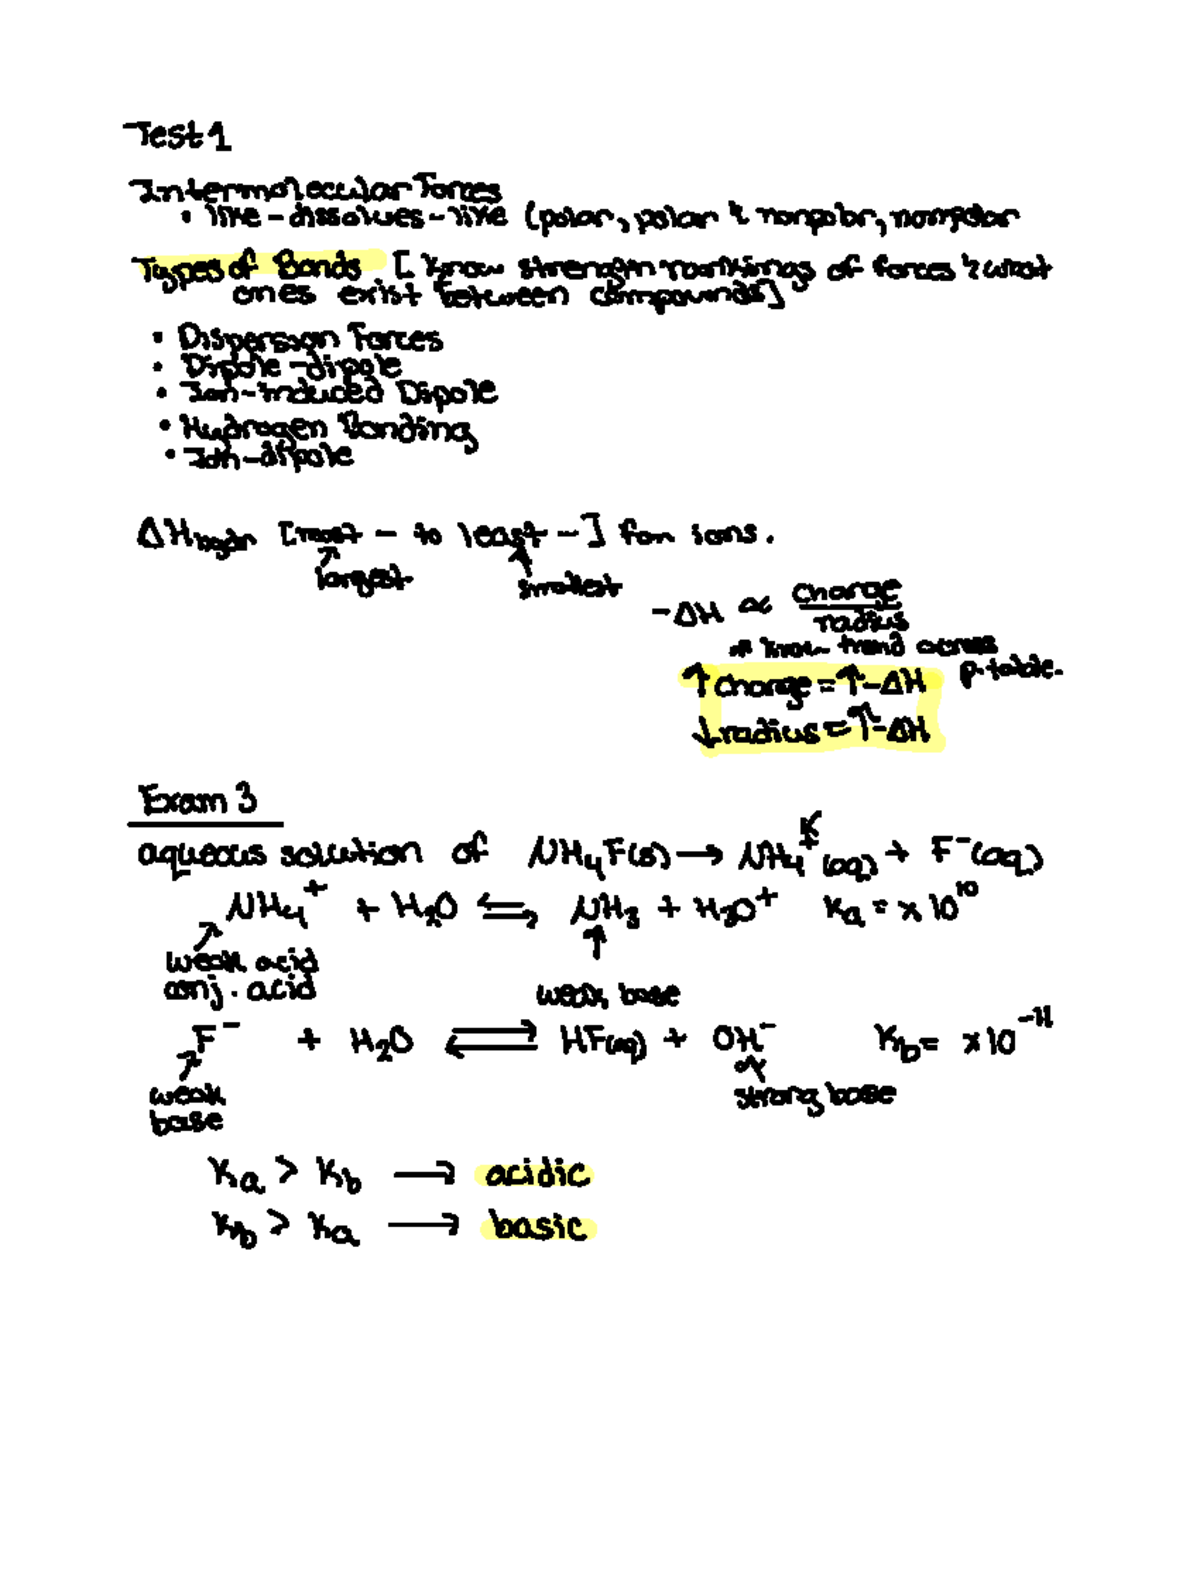 Test 1
Intermolecular Forces
• like-dissolves-like (polar, polar & nonpolar, nonpolar
Types of Bonds [know strength rankings of forces & what
ones exist between compounds]
• Dispersion Forces
• Dipole-dipole
• Ion-Induced Dipole
• Hydrogen Bonding
• Ion-dipole
ΔH [most - to least -] for ions.
largest smallest
-ΔH ∝ charge/radius
* know trend across
p. table.
↑charge = ↑-ΔH
↓radius = ↑-ΔH
Exam 3
aqueous solution of NH₄F(s) → NH₄⁺(aq) + F⁻(aq)
NH₄⁺ + H₂O ⇌ NH₃ + H₃O⁺ Ka = x 10¹⁰
weak acid
conj. acid weak base
F⁻ + H₂O ⇌ HF(aq) + OH⁻ Kb = x 10⁻¹¹
weak strong base
base
Ka > Kb → acidic
Kb > Ka → basic